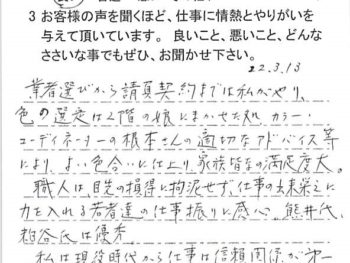 3 お客様の声を聞くほど、仕事に情熱とやりがいを
与えて頂いています。 良いこと、悪いこと、どんな
ささいな事でもぜひ、お聞かせ下さい。
22.3.13
業者選びから請負契約までは私がやり、
色の選定は2階の娘にまかせた処 カラー・
コーディネーターの根本さんの適切なアドバイス等
により、よい色合いに仕上り、家族皆なの満足度大。
職人は、目先の損得に拘泥せず、仕事の出来栄えに
力を入れる若者達の仕事振りに感心。熊井氏、
粕谷氏は優秀。
私は現役時代から仕事は信頼関係が第一